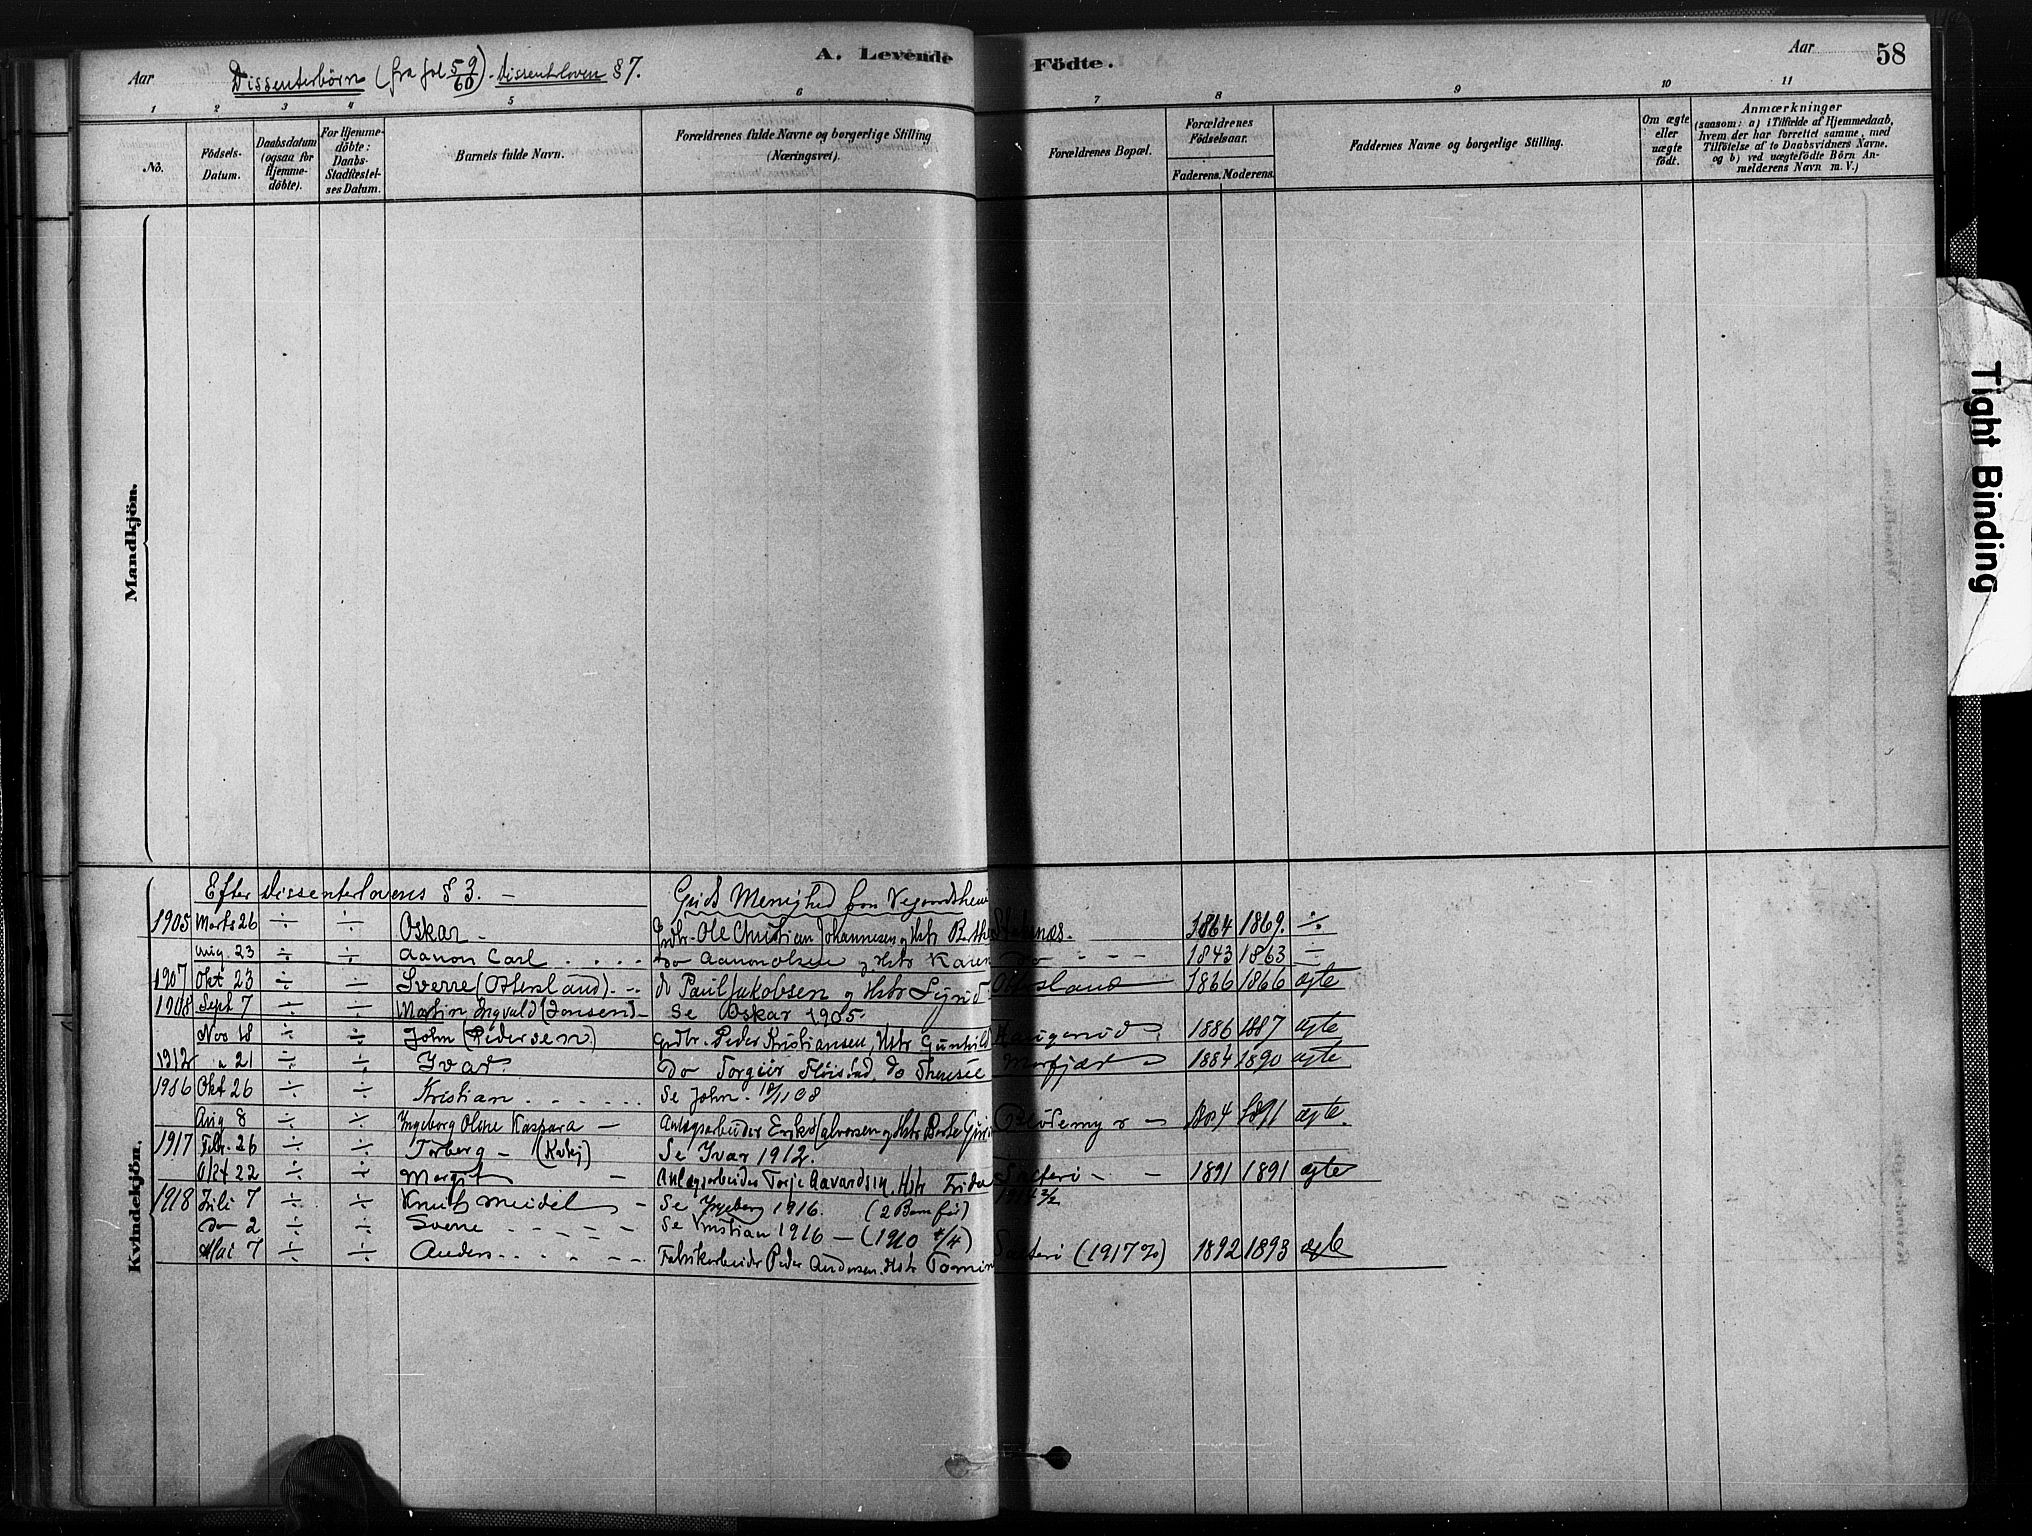 Aar Dissenterbörn (fra fol 59/60). Dissenterloven § 7. A. Levende Födte. Aar 58
1 2 3 4 5 6 7 8 9 10 11
No.
Födsels-Datum.
Daabsdatum (ogsaa for Hjemme-döbte).
For Hjemme-döbte: Daabs-Stadfæstel-ses Datum.
Barnets fulde Navn.
Forældrenes fulde Navne og borgerlige Stilling (Næringsvei).
Forældrenes Bopæl.
Forældrenes Födselsaar.
Faderens. Moderens.
Faddernes Navne og borgerlige Stilling.
Om ægte eller uægte födt.
Anmærkninger
(saasom: a) i Tilfælde af Hjemmedaab, hvem der har forrettet samme, med Tilföielse af to Daabsvidners Navne. og b) ved uægtefödte Börn An-melderens Navn m. V.)
Mandkjön.
Tight Binding
Kvindekjön.
Efter Dissenterlovens § 3. — Menighed fra
1905 Marts 26 ÷ ÷ Oskar - Grdbr. Ole Christian Johannesen og Hstr 1864 1869. ÷
Aug. 23 ÷ ÷ Aanon Carl . . . . Do Aanon Olsen og Hstr Karen Do - - - 1843 1863 ÷
1907 Okt 23 ÷ ÷ Sverre (Ottersland) . - do Paul Jakobsen og Hstr Ottersland 1866 1866 ægte
1908 Sept 7 ÷ ÷ Martin Ingvald (Jonsen) - Se Oskar 1905
Nov 18 ÷ ÷ John (Pedersen) Grdbr. Peder Kristiansen, Hstr Gunhild 1886 1887 ægte
1912 " 21 ÷ ÷ Ivar Do Torgeir do Therese Morfjær 1884 1890 ægte
1916 Okt 26 ÷ ÷ Kristian . . . . . . Se John. 18/11 08
Aug 8 ÷ ÷ Ingeborg Oline Kaspara — Anlægsarbeider og Hstr 1891 ægte.
1917 Febr. 26 ÷ ÷ Torberg - Se Ivar 1912.
Okt 22 ÷ ÷ Margit — Anlægsarbeider Torje Hstr Frida 1891 1891 ægte
1918 Juli 7 ÷ ÷ Knut Meidel - Se Ingeborg 1916.
do 2 ÷ ÷ Sverre - - - Se Kristian 1916 —
Mai 7 ÷ ÷ Anders . . . Fabrikarbeider Peder Andersen. Hstr 1892 1893 ægte